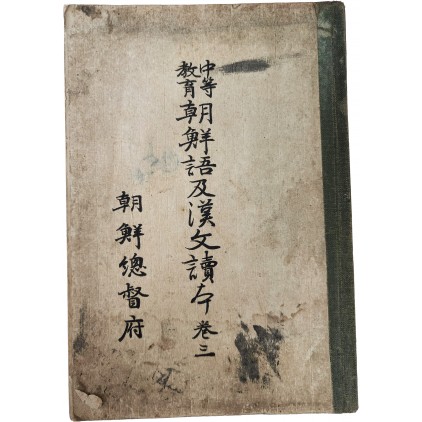 中等教育 朝鮮語及漢文讀本 卷三
朝鮮總督府